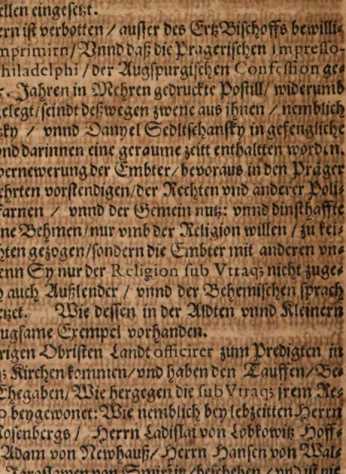 ellen eingesetzt.
ern ist verbotten / ausser des Ertz Bischoffs bewilli-
mprimirn / Vnnd daß die Pragerischen Impresso-
hiladelphi / der Augspurgischen Confession ge-
Jahren in Mehren gedruckte Postill / widerumb
elegt / seindt deßwegen zwene aus ihnen / nemblich
ky / vnnd Danyel Sedltschansky in gefengliche
nd darinnen eine geraume zeitt enthaltten worden.
vernewerung der Embter / bevoraus in den Präger
ehrten vorstendigen / der Rechten vnd anderer Poli-
farnen / vnnd der Gemein nutz: vnnd dinsthaffte
ne Behmen / nur vmb der Religion willen / zu kei-
hten gezogen / sondern die Embter mit anderen vn-
enn Sy nur der Religion sub Vtraq; nicht zuge-
h auch Außlender / vnnd der Behemischen sprach
etzet. Wie dessen in der Aldten vnnd Kleinern
ugsame Exempel vorhanden.
rigen Obristen Landtofficirer zum Predigten in
Kirchen kommen / vnd haben den Tauffen / Be-
Ehegaben / Wie hergegen die sub Vtraq; irem Re-
beygewonet: Wie nemblich bey lebzeitten Herrn
Rosenbergs / Herrn Ladislai von Lobkowitz Hoff-
Adam von Newhauß / Herrn Hansen von Wal-
von Smirzitz / beschehen /